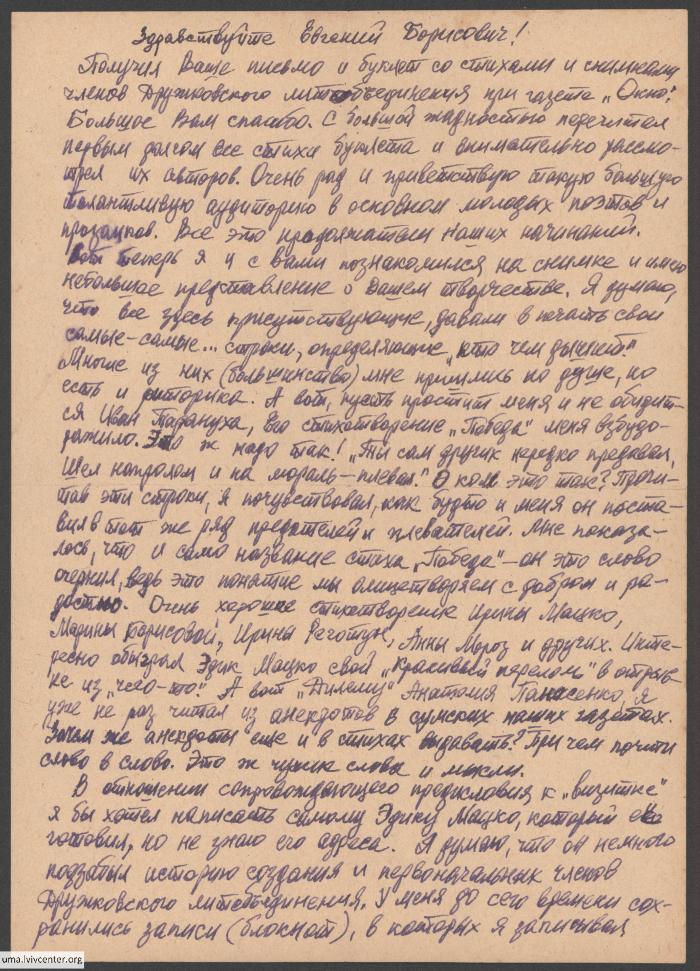 Здравствуйте Евгений Борисович!
Получил Ваше письмо и буклет со стихами и снимками
членов Дружковского литобъединения при газете „Окно".
Большое Вам спасибо. С большой жадностью перечитал
первым долгом все стихи буклета и внимательно рассмо-
трел их авторов. Очень рад и приветствую такую большую
талантливую аудиторию в основном молодых поэтов и
прозаиков. Все это продолжатели наших начинаний.
Вот теперь я и с вами познакомился на снимке и имею
небольшое представление о Вашем творчестве. Я думаю,
что все здесь присутствующие, давали в печать свои
самые-самые... строки, определяющие „кто чем дышет".
Многие из них (большинство) мне пришлись по душе, но
есть и риторика. А вот, пусть простит меня и не обидит-
ся Иван Тарануха, Его стихотворение „Победа" меня взбудо-
ражило. Это ж надо так! „Ты сам других нередко предавал,
Шел напролом и на мораль – плевал." О ком это так? Прочи-
тав эти строки, я почувствовал, как будто и меня он поста-
вил в тот же ряд предателей и плевателей. Мне показа-
лось, что и само название стиха „Победа" – он это слово
очернил, ведь это понятие мы олицетворяем с добром и ра-
достью. Очень хорошие стихотворения Ирины Мацко,
Марины Борисовой, Ирины Реготун, Анны Мороз и других. Инте-
ресно обыграл Эдик Мацко свой „Красивый перелом" в отрыв-
ке из „чего-то". А вот „Дилему" Анатолия Панасенко, я
уже не раз читал из анекдотов в сумских наших газетах.
Зачем же анекдоты еще и в стихах выдавать? При чем почти
слово в слово. Это ж чужие слова и мысли.
В отношении сопровождающего предисловия к „визитке"
я бы хотел написать самому Эдику Мацко, который ее
готовил, но не знаю его адреса. Я думаю, что он немного
подзабыл историю создания и первоначальных членов
Дружковского литобъединения. У меня до сего времени сох-
ранились записи (блокнот), в которых я записывал
uma.lvivcenter.org